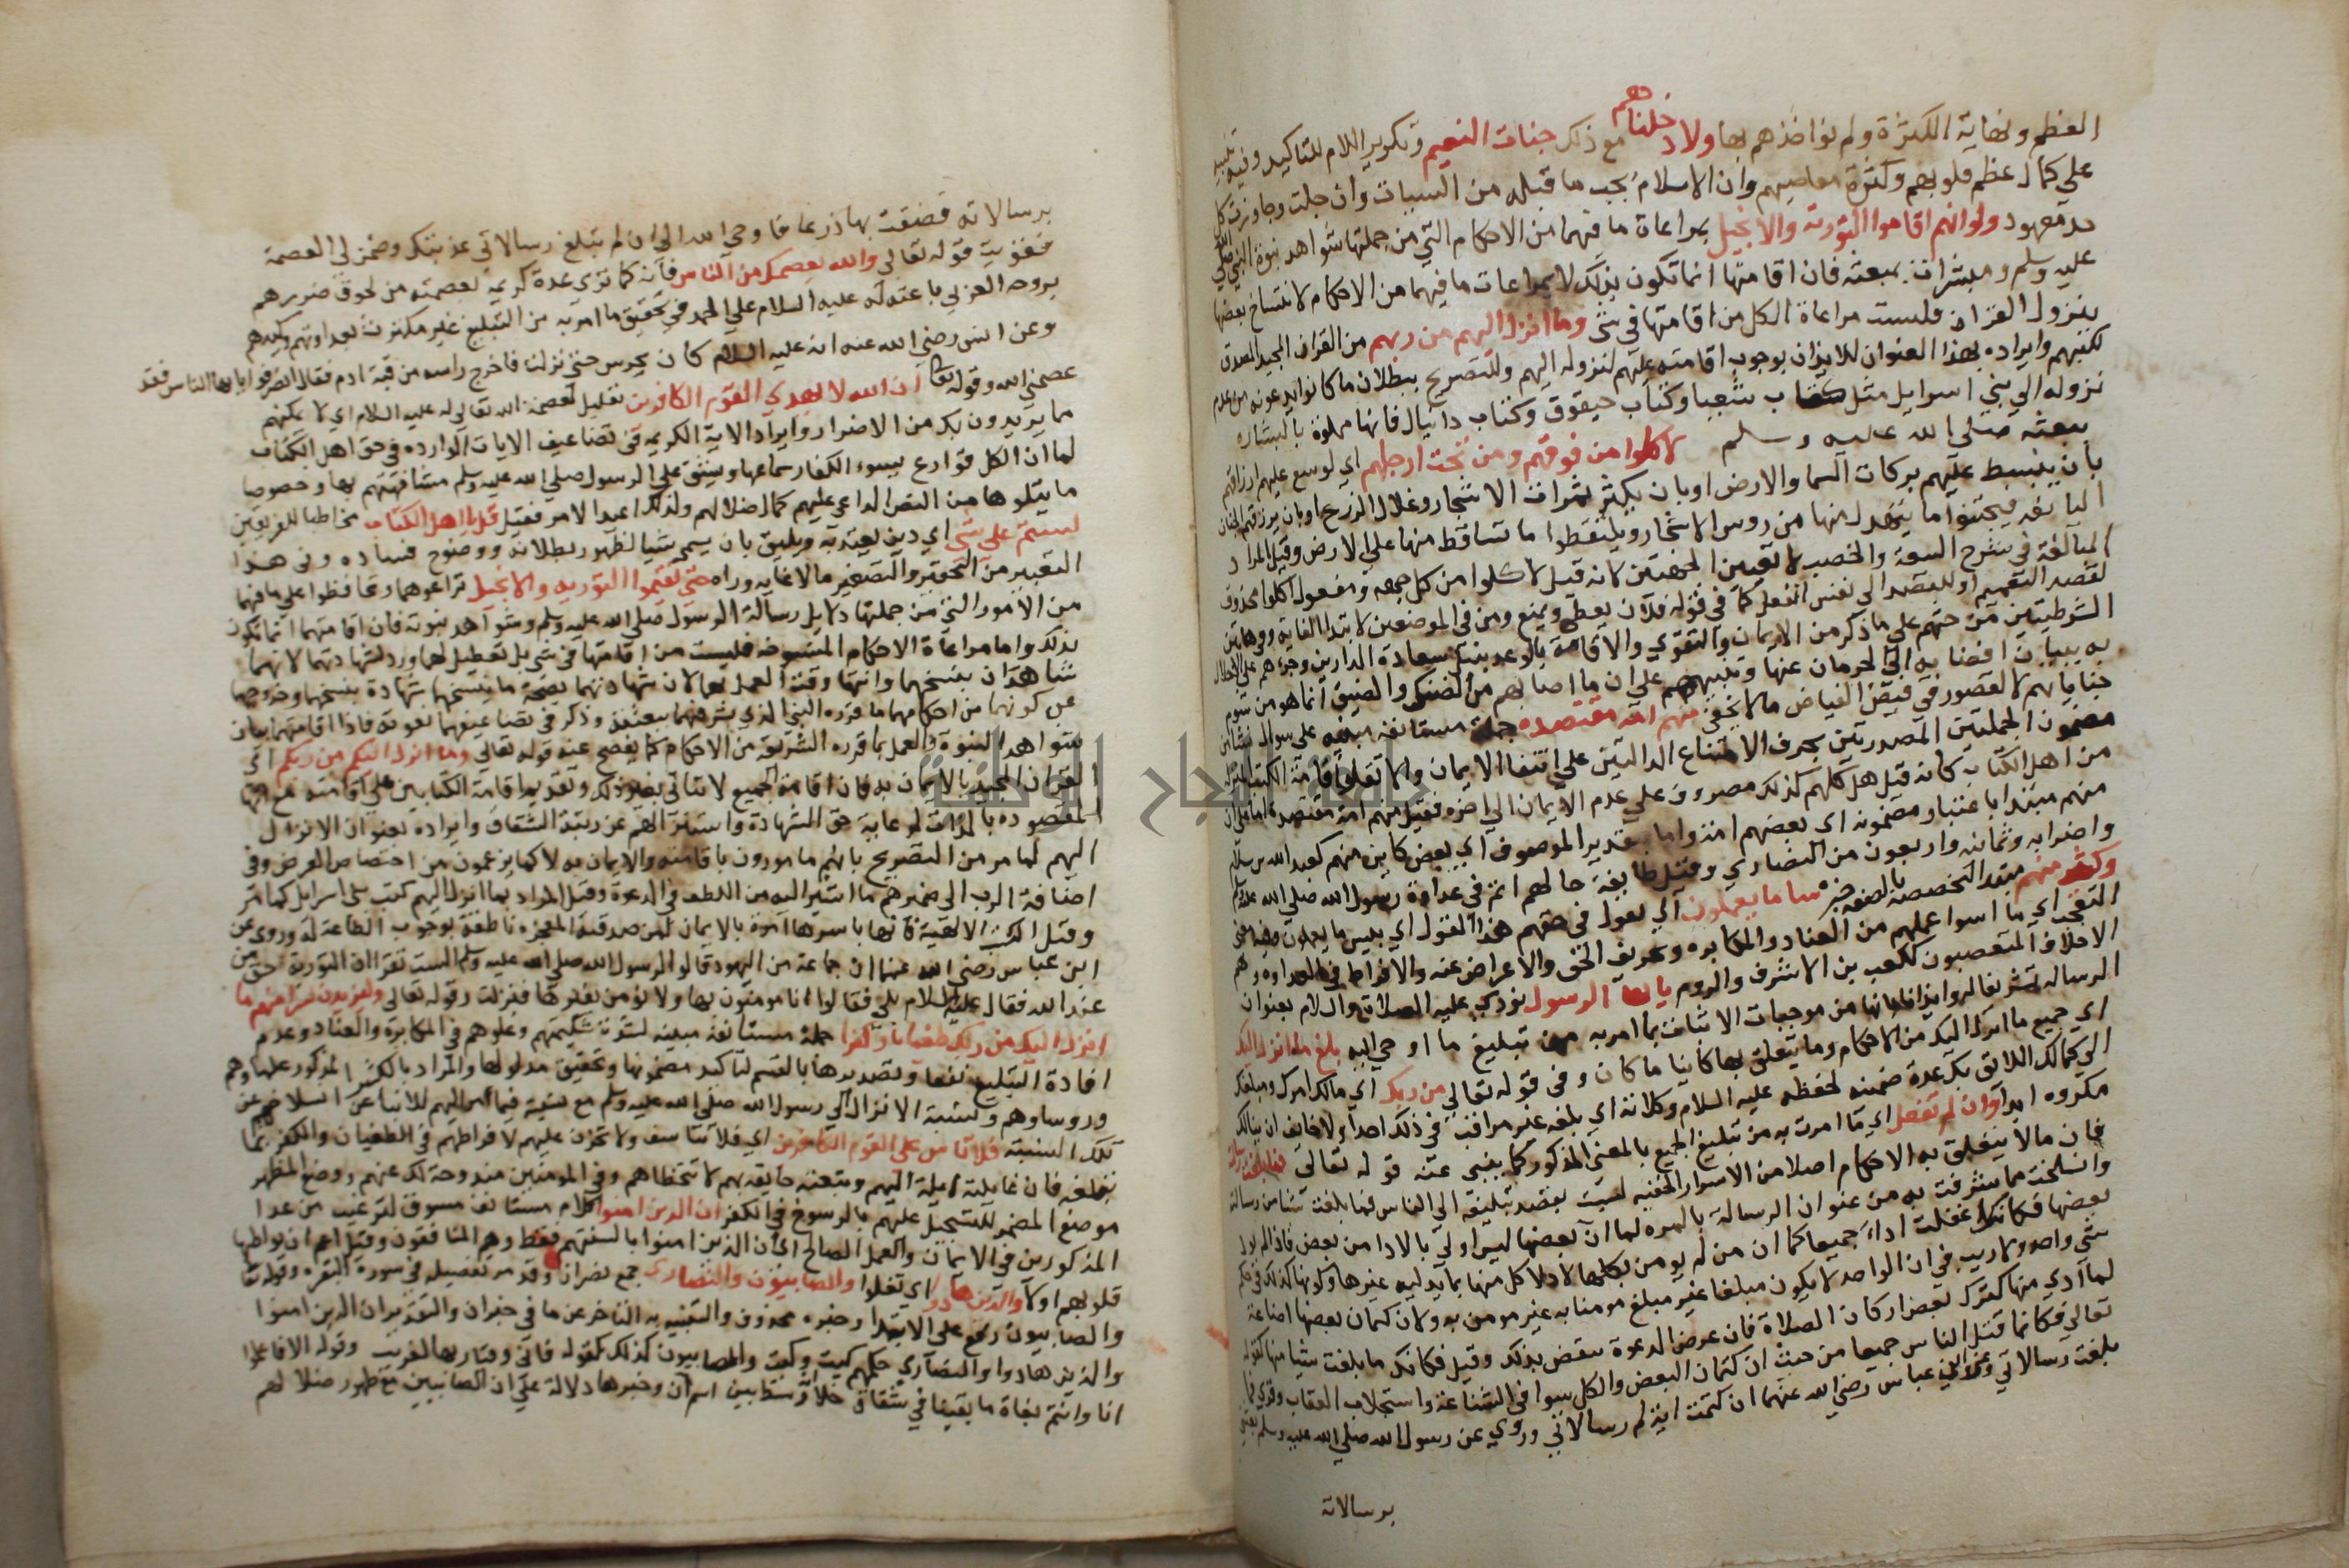 العظم ونهاية الكثرة ولم نواخذهم بها ولادخلناهم مع ذلك جنات النعيم وتكرير اللام للتاكيد وفيه تنبيه
على كمال عظم ذنوبهم وكثرة معاصيهم وان الاسلام يجب ما قبله من السيات وان جلت وجاوزت كل
حد معهود ولو انهم اقاموا التورية والانجيل بمراعاة ما فيهما من الاحكام التي من جملتها شواهد نبوة النبي صلي الله
عليه وسلم ومبشرات بمبعثه فان اقامتها انما تكون بذلك لا بمراعات ما فيهما من الاحكام لانتساخ بعضها
بنزول القران فليست مراعاة الكل من اقامتها في شي وما انزل اليهم من ربهم من القران المجيد المصدق
لكتبهم وايراده بهذا العنوان للايذان بوجوب اقامته عليهم لنزوله اليهم وللتصريح ببطلان ما كانوا يدعونه من عدم
نزوله الي بني اسرايل مثل كتاب شعيا وكتاب حيقوق وكتاب دانيال فانها مملوة بالبشاره
بمبعثه صلي الله عليه وسلم لاكلوا من فوقهم ومن تحت ارجلهم اي لوسع عليهم ارزاقهم
بان يبسط عليهم بركات السما والارض او بان يكثر ثمرات الاشجار وغلال الزرع او بان يرزقهم الجنان
اليانعه فيجتنوا ما يتهدل منها من روس الاشجار ويلتقطوا ما تساقط منها علي الارض وقيل المراد
المبالغة في شرح السعة والخصب لا تعيين الجهتين كانه قيل لاكلوا من كل جهه ومفعول اكلوا محذوف
لقصد التعميم او للقصد الي نفس الفعل كما في قوله فلان يعطي ويمنع ومن في الموضعين لابتدا الغاية وفي هاتين
الشرطيتين من حثهم علي ما ذكر من الايمان والتقوي والاقامة بالوعد بنيل سعادة الدارين وزجرهم علي الاخلال
به ببيان افضايه الي الحرمان عنها وتنبيههم علي ان ما اصابهم من الضنك والضيق انما هو من شوم
جناياتهم لا لقصور في فيض الفياض ما لا يخفي منهم امة مقتصده جملة مستانفه مبنيه علي سوال نشا من
مضمون الجملتين المصدرتين بحرف الامتناع الدالتين علي انتفا الايمان والاتقا واقامة الكتب المنزله
من اهل الكتاب كانه قيل هل كلهم كذلك مصرون علي عدم الايمان الي اخره فقيل منهم امة مقتصده اما علي ان
منهم مبتدا باعتبار مضمونه اي بعضهم امة واما بتقدير الموصوف اي بعض كاين منهم كعبد الله بن سلام
واضرابه وثمانيه واربعون من النصاري وقيل طايفة حالهم امم في عداوة رسول الله صلي الله عليه وسلم
وكثير منهم مبتدا لتخصصه بالصفة خبره سا ما يعملون اي يقول في حقهم هذا القول اي بيس ما يعملون وفيه معني
التعجب اي ما اسوا عملهم من العناد والمكابره وتحريف الحق والاعراض عنه والافراط في العداوه وهم
الاجلاف المتعصبون ككعب بن الاشرف والروم يا ايها الرسول نودي عليه الصلاة والسلام بعنوان
الرسالة تشريفا له وايذانا بانها من موجبات الاتيان بما امر به من تبليغ ما اوحي اليه بلغ ما انزل اليك
اي جميع ما انزل اليك من الاحكام وما يتعلق بها كاينا ما كان وفي قوله تعالي من ربك اي مالك امرك ومبلغك
الي كمالك اللائق بك عدة ضمنيه لحفظه عليه السلام وكلاته اي بلغه غير مراقب في ذلك احدا ولا خايف ان ينالك
مكروه ابدا وان لم تفعل اي ما امرت به من تبليغ الجميع بالمعني المذكور كما ينبي عنه قوله تعالي فما بلغت رسالته
فان ما لا يتعلق به الاحكام اصلا من الاسرار الخفيه ليست بقصد تبليغه الي الناس فما بلغت شيا من رسالته
وانسلخت مما شرفت به من عنوان الرسالة بالمره لما ان بعضها ليس اولي بالادا من بعض فاذا لم يود
بعضها فكانك اغفلت اداء جميعها كما ان من لم يومن ببعضها كان كمن لم يومن بكلها لادلا كل منها بما يدليه غيرها وكونها كذلك في حكم
شي واحد ولا ريب في ان الواحد لا يكون مبلغا غير مبلغ مومنا به غير مومن به ولان كتمان بعضها اضاعة
لما ادي منها كترك بعض اركان الصلاة فان عرض الدعوة ينتقض بذلك وقيل فكانك ما بلغت شيا منها كقوله
تعالي فكانما قتل الناس جميعا من حيث ان كتمان البعض والكل سوا في الشناعة واستجلاب العقاب وقري فما
بلغت رسالاتي وعن ابن عباس رضي الله عنهما ان كتمت اية لم تبلغ رسالاتي وروي عن رسول الله صلي الله عليه وسلم بعثني
برسالاته
برسالاته فضقت بها ذرعا فاوحي الله الي ان لم تبلغ رسالاتي عذبتك وضمن لي العصمة
فقويت قوله تعالي والله يعصمك من الناس فانه كما تري عدة كريمه بعصمته من لحوق ضررهم
بروحه العزيز باعثه له عليه السلام علي الجد في تحقيق ما امر به من التبليغ غير مكترث بعداوتهم وكيدهم
وعن انس رضي الله عنه انه عليه السلام كان يحرس حتي نزلت فاخرج راسه من قبة ادم فقال انصرفوا يا ايها الناس فقد
عصمني الله وقوله تعالي ان الله لا يهدي القوم الكافرين تعليل لعصمته تعالي له عليه السلام اي لا يمكنهم
مما يريدون بك من الاضرار وايراد الاية الكريمه في تضاعيف الايات الوارده في حق اهل الكتاب
لما ان الكل قوارع يسوء الكفار سماعها ويشق علي الرسول صلي الله عليه وسلم مشافهتهم بها وخصوصا
ما يتلوها من النص الناعي عليهم كمال ضلالهم ولذلك اعيد الامر فقيل قل يا اهل الكتاب مخاطبا للفريقين
لستم علي شي اي دين يعتد به ويليق بان يسمي شيا لظهور بطلانه ووضوح فساده وفي هذا
التعبير من التحقير والتصغير ما لا غايه وراه حتي تقيموا التوريه والانجيل تراعوهما وتحافظوا علي ما فيهما
من الامور التي من جملتها دلايل رسالة الرسول صلي الله عليه وسلم وشواهد نبوته فان اقامتهما انما تكون
بذلك واما مراعاة الاحكام المنسوخه فليست من اقامتها في شي بل تعطيل لها ورد لشهادتهما لانهما
شاهدان بنسخها وانتها وقت العمل بها لان شهادتهما بصحة ما ينسخها شهادة بنسخها وخروجها
عن كونها من احكامهما ما قرره النبي الذي بشر فيهما ببعثته وذكر في تضاعيفهما نعوته فاذا اقامتهما بيان
شواهد النبوة والعمل بما قرره الشريعة من الاحكام كما يفصح عنه قوله تعالي وما انزل اليكم من ربكم اي
القران المجيد بالايمان به فان اقامة الجميع لا تتاتي بغير ذلك وتقديم اقامة الكتابين علي اقامته مع انها
المقصوده بالذات لرعاية حق الشهادة واستنزالهم عن رتبة الشقاق وايراده بعنوان الانزال
اليهم لما مر من التصريح بانهم مامورون باقامته والايمان به لا كما يزعمون من اختصاصه بالعرب وفي
اضافة الرب الي ضميرهم ما اشير اليه من اللطف في الدعوة وقيل المراد بما انزل اليهم كتب بني اسرايل كما مر
وقيل الكتب الالهية فانها باسرها امرة بالايمان لمن صدقته المعجزه ناطقة بوجوب الطاعة له وروي عن
ابن عباس رضي الله عنهما ان جماعة من اليهود قالوا لرسول الله صلي الله عليه وسلم الست تقرا ان التورية حق من
عند الله فقال عليه السلام بلي فقالوا انا مومنون بها ولا نومن بغيرها فنزلت وقوله تعالي وليزيدن كثيرا منهم ما
انزل اليك من ربك طغيانا وكفرا جملة مستانفة مبينة لشدة شكيمتهم وغلوهم في المكابرة والعناد وعدم
افادة التبليغ نفعا وتصديرها بالقسم لتاكيد مضمونها وتحقيق مدلولها والمراد بالكثير المذكور علماوهم
وروساوهم ونسبة الانزال الي رسول الله صلي الله عليه وسلم مع نسبته فيما مر اليهم للانباء عن انسلاخهم عن
تلك النسبة فلا تاس علي القوم الكافرين اي فلا تتاسف ولا تحزن عليهم لافراطهم في الطغيان والكفر بما
تبلغه فان غايلته ايلة اليهم وتبعته حايقة بهم لا تتخطاهم وفي المومنين مندوحة لك عنهم ووضع المظهر
موضع المضمر للتسجيل عليهم بالرسوخ في الكفر ان الذين امنوا كلام مستانف مسوق لترغيب من عدا
المذكورين في الايمان والعمل الصالح اي ان الذين امنوا بالسنتهم فقط وهم المنافقون وقيل اعم ان يواطيها
قلوبهم اولا والذين هادوا اي تهودوا والصابيون والنصاري جمع نصران وقد مر تفصيله في سورة البقره وقوله تعالي
والصابيون رفع علي الابتدا وخبره محذوف والتنبيه به التاخر عن ما في خبر ان والتقدير ان الذين امنوا
والذين هادوا والنصاري حكمهم كيت وكيت والصابيون كذلك كقوله فاني وقيار بها لغريب وقوله الا فاعلموا
انا وانتم بغاة ما بقينا في شقاق خلا وسط بين اسم ان وخبرها دلالة علي ان الصابيين مع ظهور ضلالهم